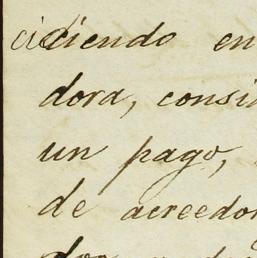 ciciendo en
dora, consi
un pago,
de acreedor
dor